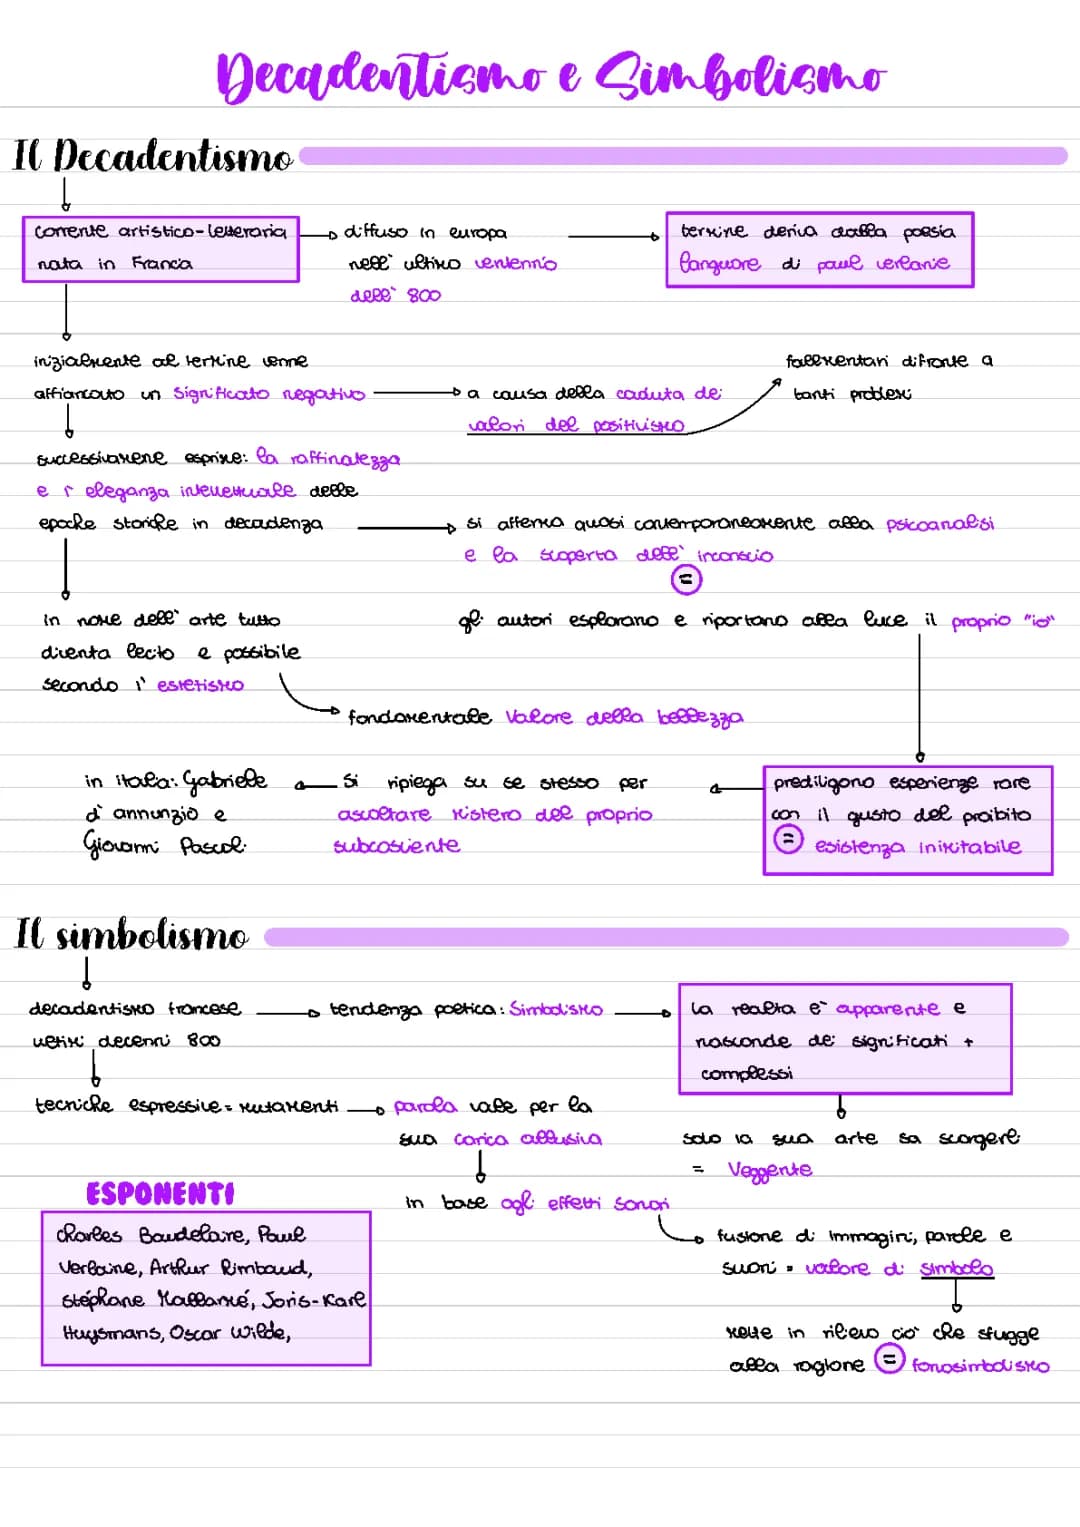 Decadentismo e Simbolismo
Il Decadentismo
corrente artistico-letteraria
nata in Francia
diffuso in europa
nell' ultimo ventennio
dell' 800
termine deriva dalla poesia
languore di paul verlanie
inizialmente al termine venne
affiancato un significato negativo
a causa della caduta dei
valori del positivismo
fallimentari difronte a
tanti problemi
successivamene esprime: la raffinatezza
e l' eleganza intellettuale delle
epoche storiche in decadenza
si afferma quasi contemporaneamente alla psicoanalisi
e la scoperta dell' inconscio
=
gli autori esplorano e riportano alla luce il proprio "io"
in nome dell' arte tutto
diventa lecito e possibile
secondo l' estetismo
fondamentale valore della bellezza
prediligono esperienze rare
con il gusto del proibito
= esistenza inimitabile
si ripiega su se stesso per
ascoltare mistero del proprio
subcosciente
in italia: Gabriele
d' annunzio e
Giovanni Pascoli
Il simbolismo
decadentismo francese
ultimi decenni 800
tendenza poetica: Simbolismo
la realta e' apparente e
nasconde dei significati +
complessi
solo la sua arte sa scorgerli
= Veggente
tecniche espressive = mutamenti
parola vale per la
sua carica allusiva
in base agli effetti sonori
fusione di immagini, parole e
suoni = valore di simbolo
mette in rilievo cio' che sfugge
alla ragione = fonosimbolismo
ESPONENTI
Charles Baudelaire, Paul
Verlaine, Arthur Rimbaud,
Stéphane Mallarmé, Joris-Karl
Huysmans, Oscar Wilde,